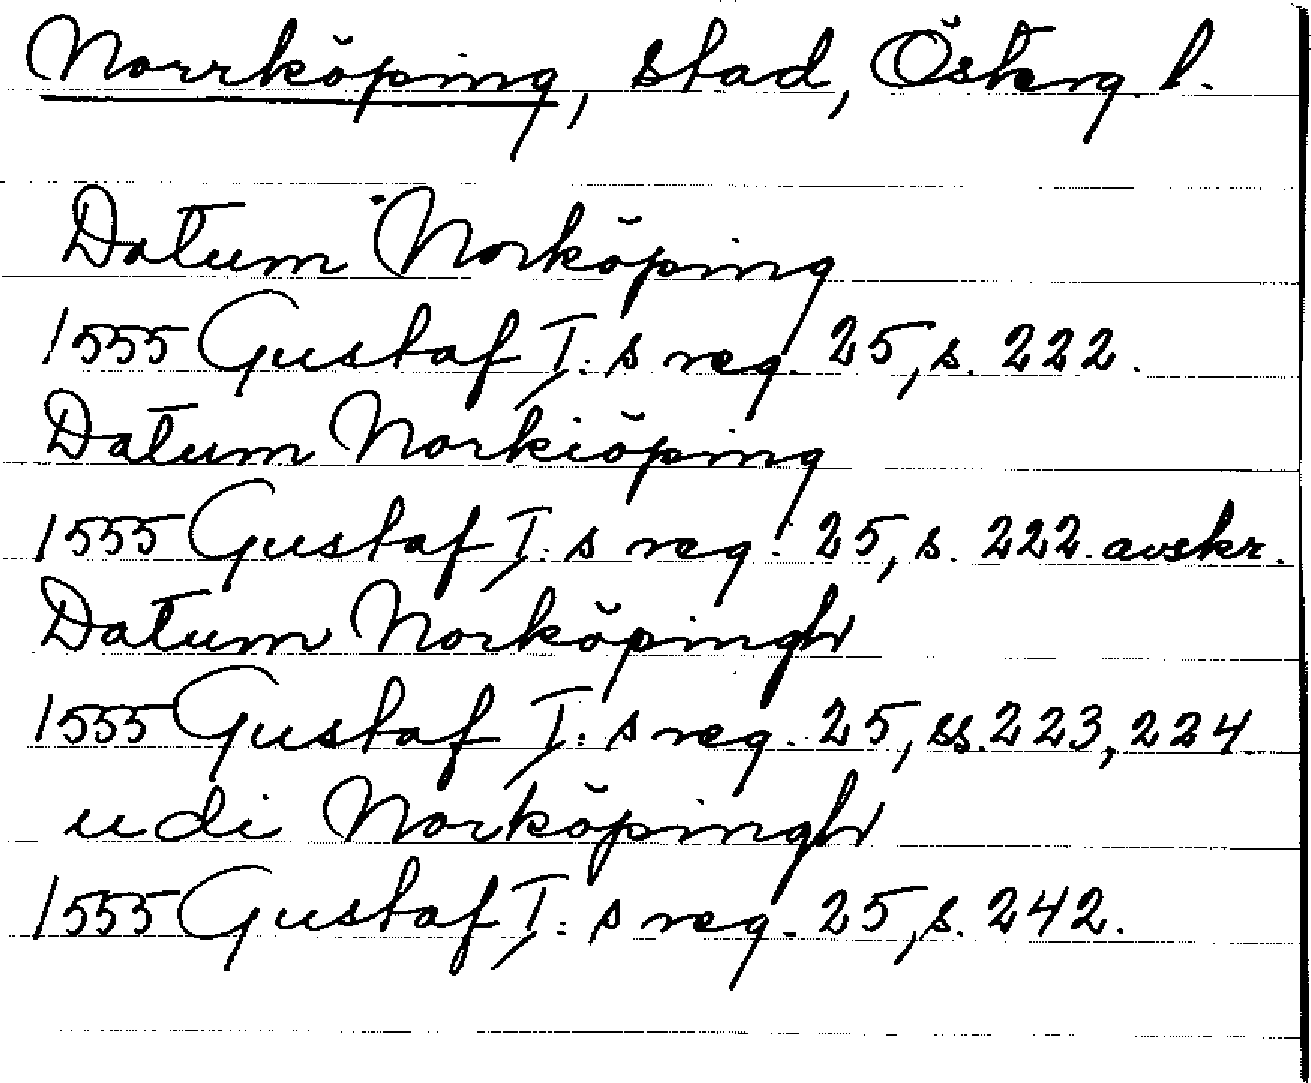 Norrköping, stad, Österg. l.
Datum Norköping
1555 Gustaf I: s reg. 25, s. 222.
Datum Norkiöping
1555 Gustaf I: s reg. 25, s. 222 avskr.
Datum Norköpingh
1555 Gustaf I: s reg. 25, ss. 223, 224
udi Norköpingh
1555 Gustaf I: s reg. 25, s. 242.